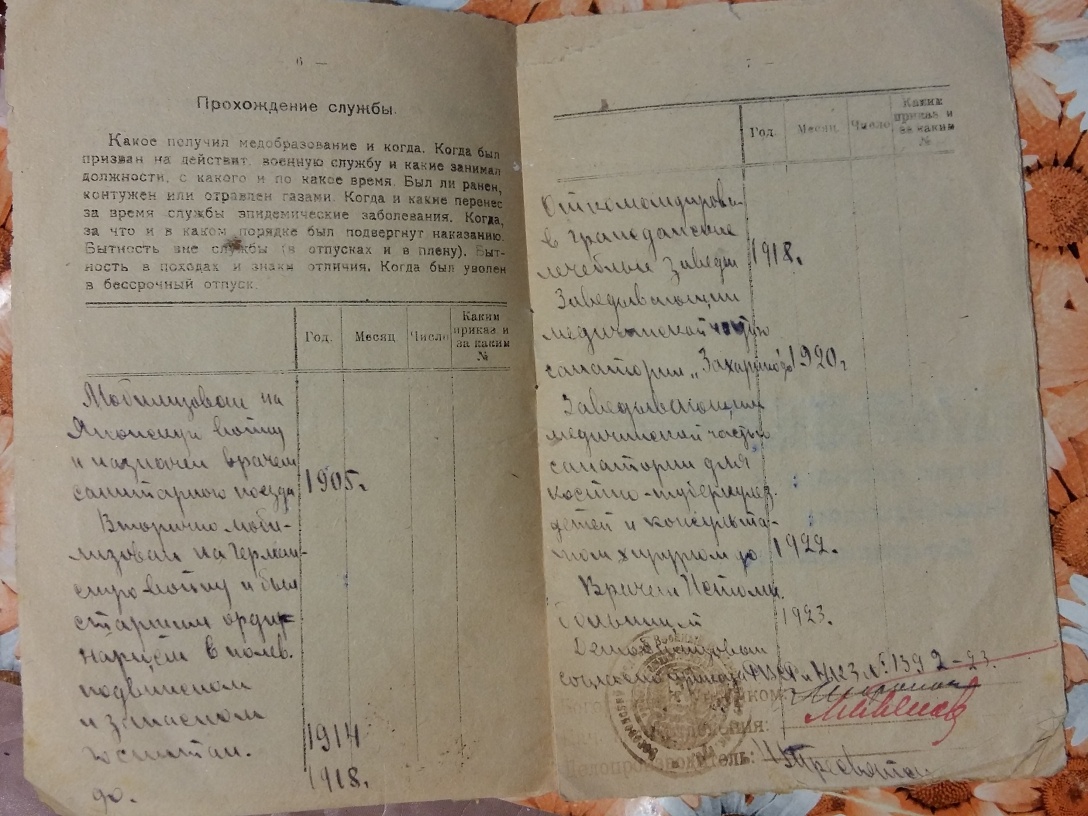 6 —
Прохождение службы.
Какое получил медобразование и когда. Когда был
призван на действит. военную службу и какие занимал
должности, с какого и по какое время. Был ли ранен,
контужен или отравлен газами. Когда и какие перенес
за время службы эпидемические заболевания. Когда,
за что и в каком порядке был подвергнут наказанию.
Бытность вне службы (в отпусках и в плену). Быт-
ность в походах и знаки отличия. Когда был уволен
в бессрочный отпуск.
Год. Месяц Число Каким
приказ и
за каким
№
Мобилизован на
Японскую войну
и назначен врачем
санитарного поезда 1905 г.
Вторично моби-
лизован на Герман-
скую войну и был
старшим орди-
натором в полев.
подвижном
и запасном
госпитал. 1914
до. 1918 г.
7 —
Год. Месяц Число Каким
приказ и
за каким
№
Откомандирова-
в гражданские
лечебные завед 1918 г.
Заведывающим
медицинской частью
санатории „Захарьино" до 1920 г
Заведывающим
медицинской частью
санатории для
костно-туберкулез.
детей и консульта-
том хирургом до 1922 г.
Врачем
больницы 1923 г.
согласно приказа № 1392-23.
Делопроизводитель: